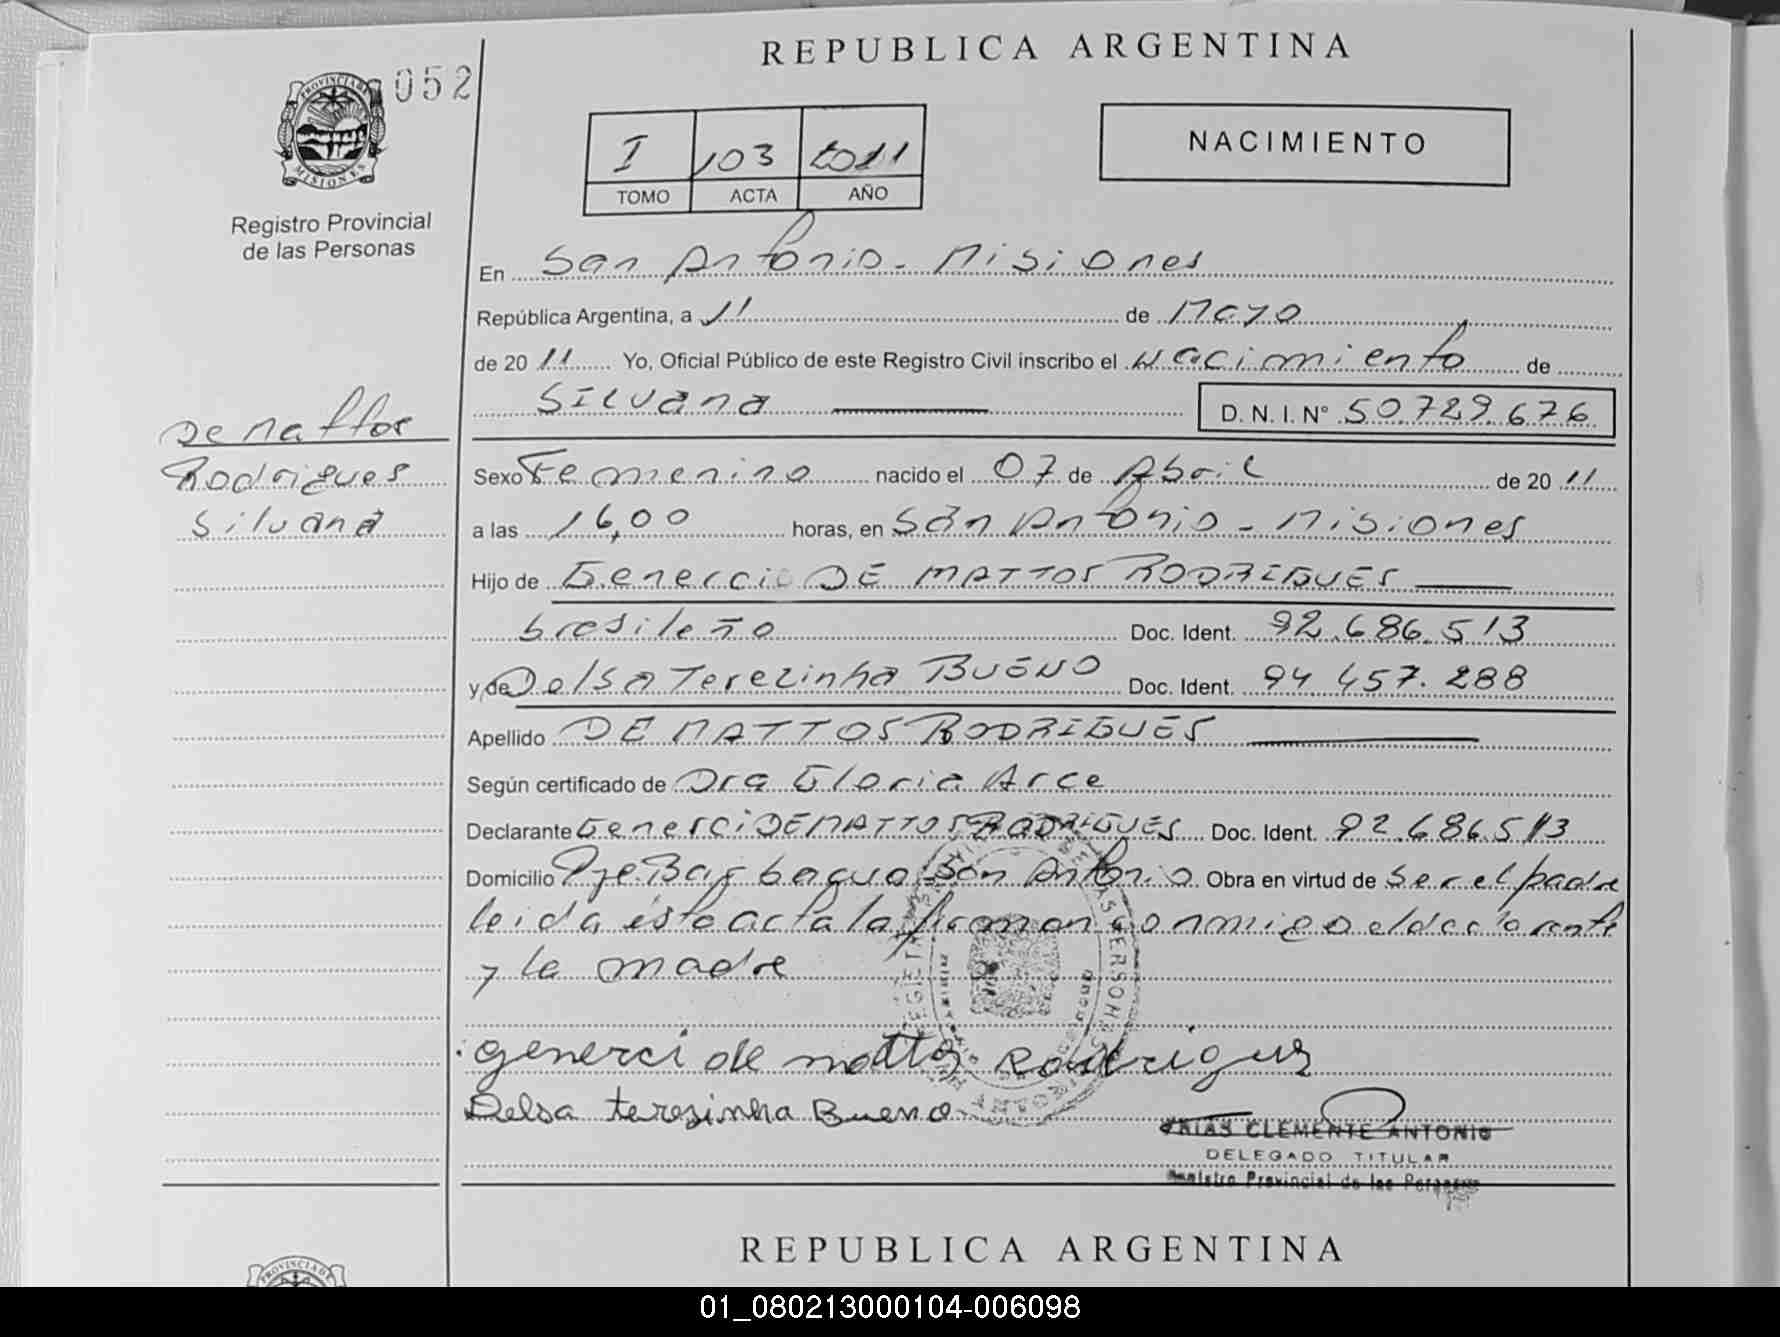 REPUBLICA ARGENTINA
052
PROVINCIA DE
MISIONES
Registro Provincial
de las Personas
I 103 2011
TOMO ACTA AÑO
NACIMIENTO
En San Antonio - Misiones
República Argentina, a 11 de Mayo
de 20 11 Yo, Oficial Público de este Registro Civil inscribo el Nacimiento de
SILVANA D.N.I. N° 50.729.676
De Mattos
Rodrigues
Silvana
Sexo Femenino nacido el 07 de Abril de 20 11
a las 16,00 horas, en San Antonio - Misiones
Hijo de Generci DE MATTOS RODRIGUES
brasileño Doc. Ident. 92.686.513
y de Delsa Terezinha BUENO Doc. Ident. 94 457.288
Apellido DE MATTOS RODRIGUES
Según certificado de Dra Gloria Arce
Declarante Generci DE MATTOS RODRIGUES Doc. Ident. 92.686.513
Domicilio San Antonio Obra en virtud de Ser el padre
leida esta acta la firman conmigo el declarante
y la madre
generci de mattos Rodrigues
Delsa terezinha Bueno
CLEMENTE ANTONIO
DELEGADO TITULAR
Registro Provincial de las Personas
REPUBLICA ARGENTINA
PROVINCIA DE
01_080213000104-006098